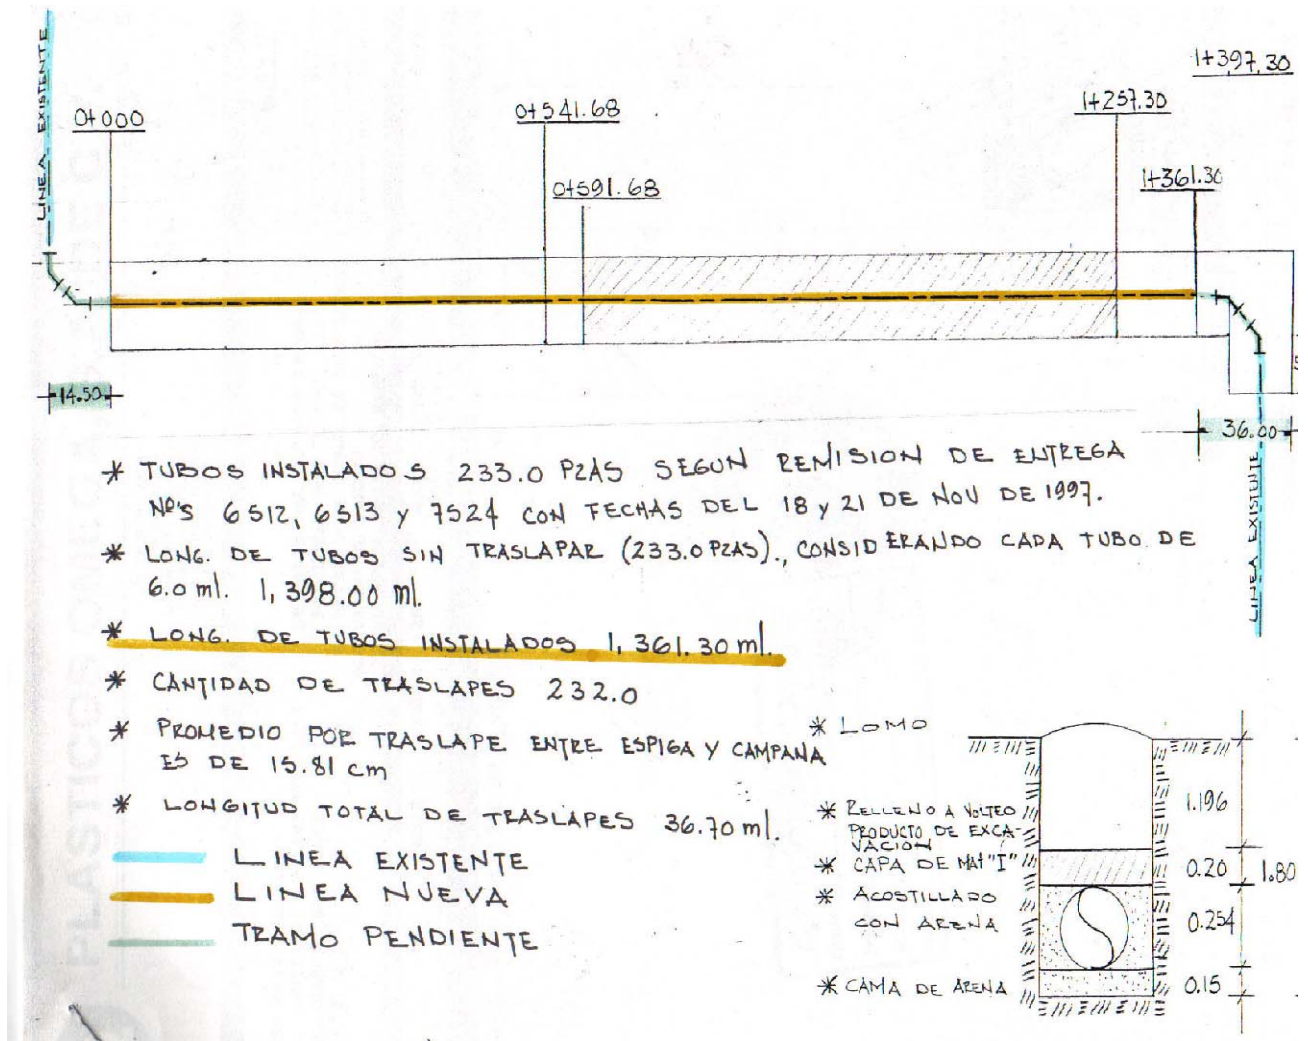 LINEA EXISTENTE
0+000
0+541.68
0+591.68
1+257.30
1+397.30
1+361.30
14.50
36.00
LINEA EXISTENTE
* TUBOS INSTALADOS 233.0 PZAS SEGUN REMISION DE ENTREGA
Nº'S 6512, 6513 y 7524 CON FECHAS DEL 18 y 21 DE NOV DE 1997.
* LONG. DE TUBOS SIN TRASLAPAR (233.0 PZAS)., CONSIDERANDO CADA TUBO DE
6.0 ml. 1,398.00 ml.
* LONG. DE TUBOS INSTALADOS 1,361.30 ml.
* CANTIDAD DE TRASLAPES 232.0
* PROMEDIO POR TRASLAPE ENTRE ESPIGA Y CAMPANA
ES DE 15.81 cm
* LONGITUD TOTAL DE TRASLAPES 36.70 ml.
LINEA EXISTENTE
LINEA NUEVA
TRAMO PENDIENTE
* LOMO
* RELLENO A VOLTEO
PRODUCTO DE EXCA-
VACION
* CAPA DE MAT "I"
* ACOSTILLADO
CON ARENA
* CAMA DE ARENA
1.196
0.20
1.80
0.254
0.15
PLASTICOS